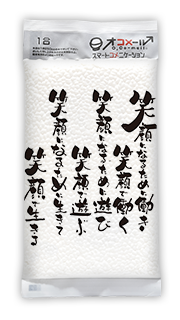 1合
オコメール
O,Co-mail
スマートコメニケーション
笑顔になるために働き
笑顔で働く
笑顔になるために遊び
笑顔で遊ぶ
笑顔になるために生きて
笑顔で生きる